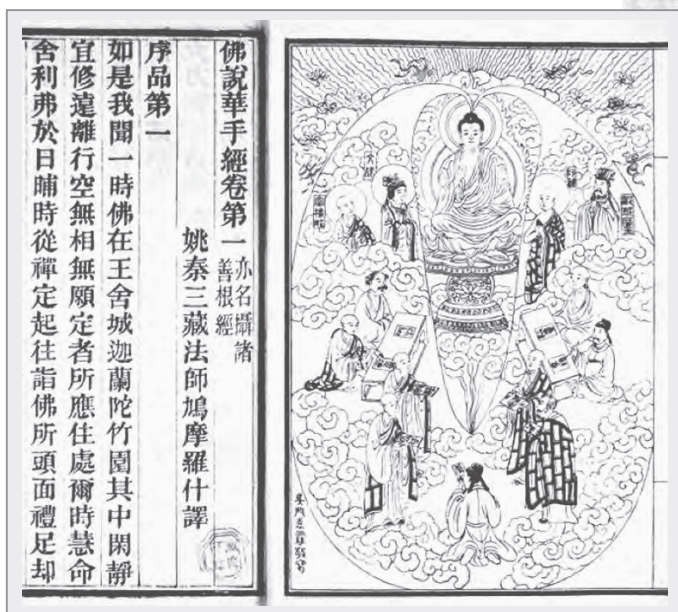 佛說華手經卷第一 亦名攝諸
善根經
姚秦三藏法師鳩摩羅什譯
序品第一
如是我聞一時佛在王舍城迦蘭陀竹園其中閑靜
宜修遠離行空無相無願定者所應住處爾時慧命
舍利弗於日晡時從禪定起往詣佛所頭面禮足却